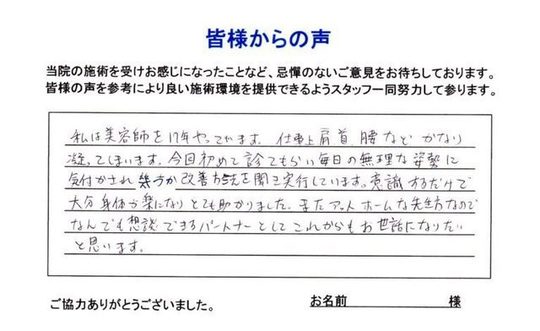 皆様からの声
当院の施術を受けお感じになったことなど、忌憚のないご意見をお待ちしております。
皆様の声を参考により良い施術環境を提供できるようスタッフ一同努力して参ります。
私は美容師を17年やっています。仕事上肩首腰などかなり
凝ってしまいます。今回初めて診てもらい毎日の無理な姿勢に
気付かされ幾つか改善方法を聞き実行しています。意識するだけで
大分身体が楽になりとても助かりました。またアットホームな先生方なので
なんでも想談できるパートナーとしてこれからもお世話になりたい
と思います。
ご協力ありがとうございました。 お名前 様